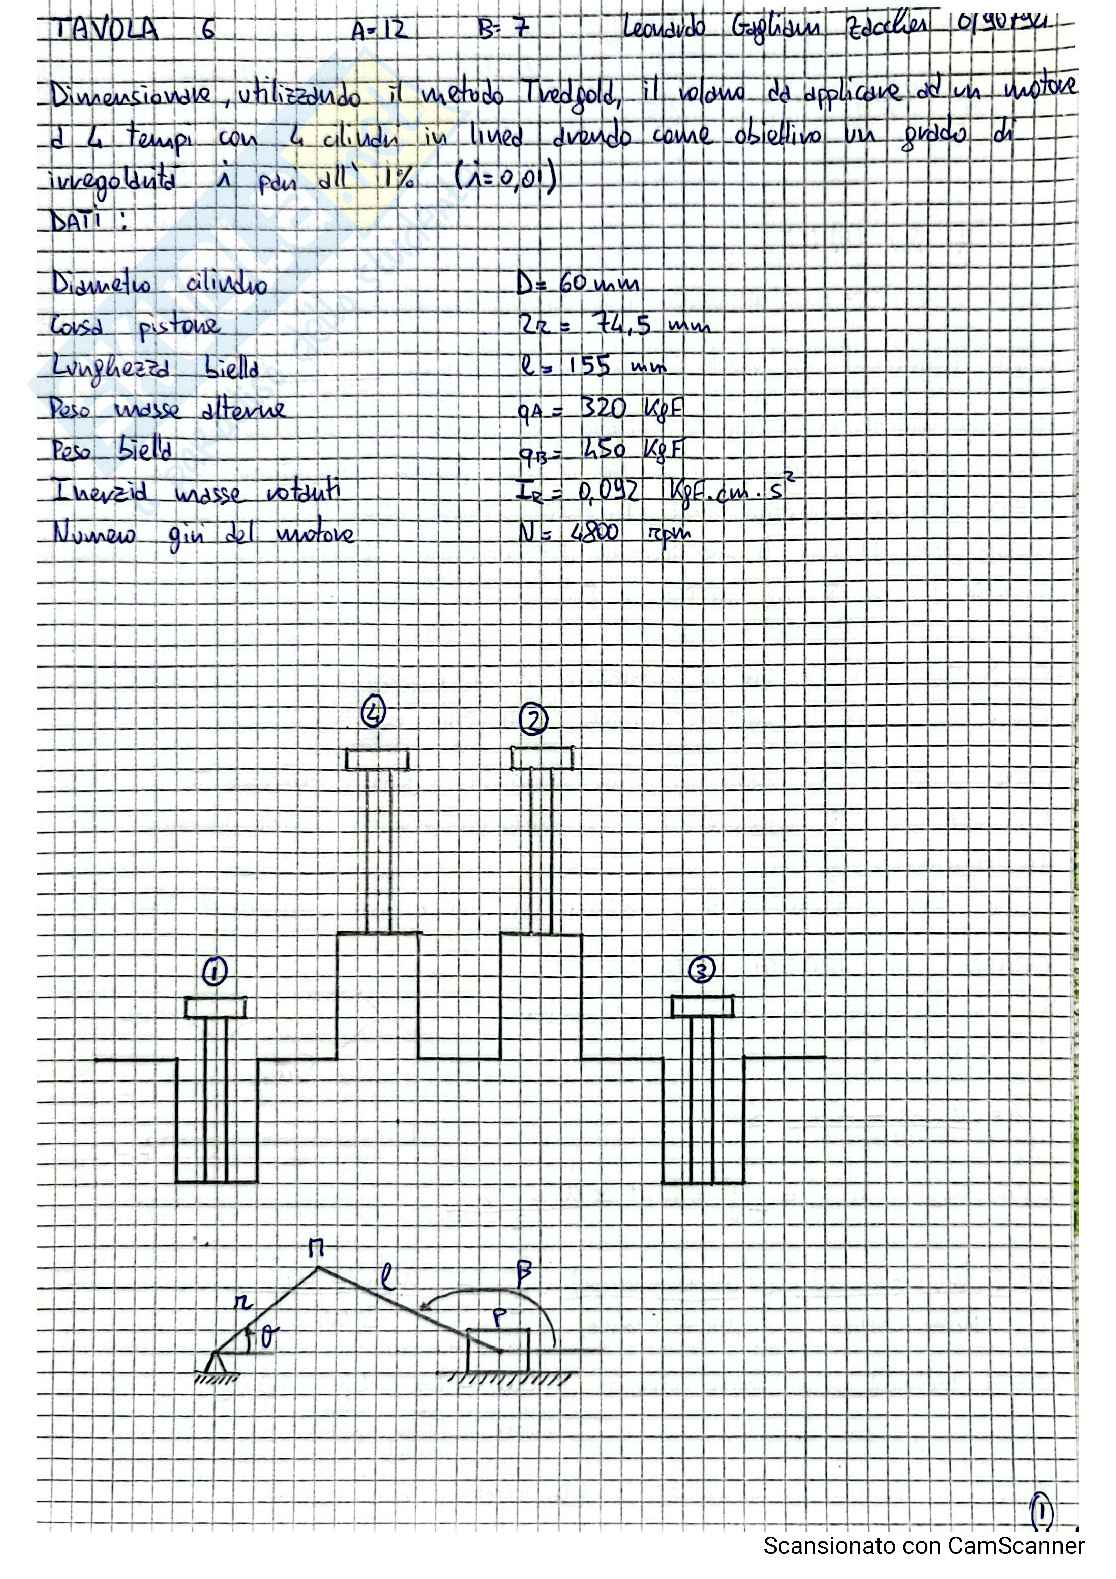 TAVOLA 6 A=12 B=7 Leonardo Gagliani
Dimensionare, utilizzando il metodo Tredgold, il volano da applicare ad un motore
a 4 tempi con 4 cilindri in linea avendo come obiettivo un grado di
irregolarità i pari all' 1% (i=0,01)
DATI :
Diametro cilindro D= 60 mm
Corsa pistone 2r = 74,5 mm
Lunghezza biella l = 155 mm
Peso masse alterne qA = 320 KgF
Peso biella qB = 450 KgF
Inerzia masse rotanti IR = 0,092 KgF.cm.s²
Numero giri del motore N= 4800 rpm
4 2
1 3
M
l β
r P
θ
1
Scansionato con CamScanner